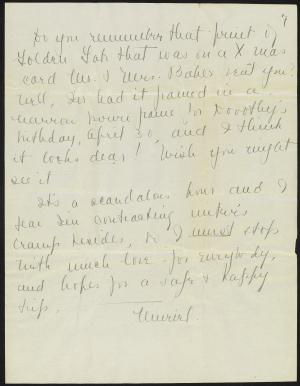 7
Do you remember that print of
Golden Gate that was on a Xmas
card Mr. & Mrs. Baker sent you?
Well, I've had it framed in a
narrow frame for Dorothy's
birthday, April 30, and I think
it looks dear! Wish you might
see it
It's a scandalous hour and I
fear I'm contracting writer's
cramp besides, so I must stop
with much love for everybody,
and hopes for a safe & happy
trip.
Muriel.